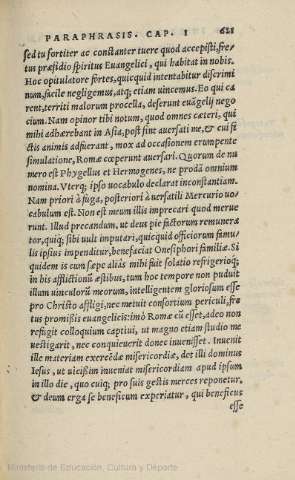 PARAPHRASIS. CAP. I 621
sed tu fortiter ac constanter tuere quod accepisti, fre
tus præsidio spiritus Euangelici, qui habitat in nobis.
Hoc opitulatore fortes, quicquid intentabitur discrimi
num, facile negligemus, atq; etiam uincemus. Eo qui ca
rent, territi malorum procella, deserunt euãgelij nego
cium. Nam opinor tibi notum, quod omnes cæteri, qui
mihi adhærebant in Asia, post sint auersati me, & cui fi
ctis animis adfuerant, mox ad occasionem erumpente
simulatione, Romæ cœperunt auersari. Quorum de nu
mero est Phygellus et Hermogenes, ne prodã omnium
nomina. Vterq; ipso uocabulo declarat inconstantiam.
Nam priori à fuga, posteriori à uersatili Mercurio uo=
cabulum est. Non est meum illis imprecari quod merue
runt. Illud precandum, ut deus pie factorum remunera
tor, quiq; sibi uult imputari, quicquid officiorum famu=
lis ipsius impenditur, benefaciat Onesiphori familiæ. Si
quidem is cum sæpe aliàs mihi fuit solatio refrigerioq;
in his afflictionũ æstibus, tum hoc tempore non puduit
illum uinculorũ meorum, intelligentem gloriosum esse
pro Christo affligi, nec metuit consortium periculi, fre
tus promissis euangelicis: imò Romæ cũ esset, adeo non
refugit colloquium captiui, ut magno etiam studio me
uestigarit, nec conquieuerit donec inuenisset. Inuenit
ille materiam exercẽdæ misericordiæ, det illi dominus
Iesus, ut uicißim inueniat misericordiam apud ipsum
in illo die, quo cuiq; pro suis gestis merces reponetur,
& deum erga se beneficum experiatur, qui beneficus
esse
Ministerio de Educación, Cultura y Deporte